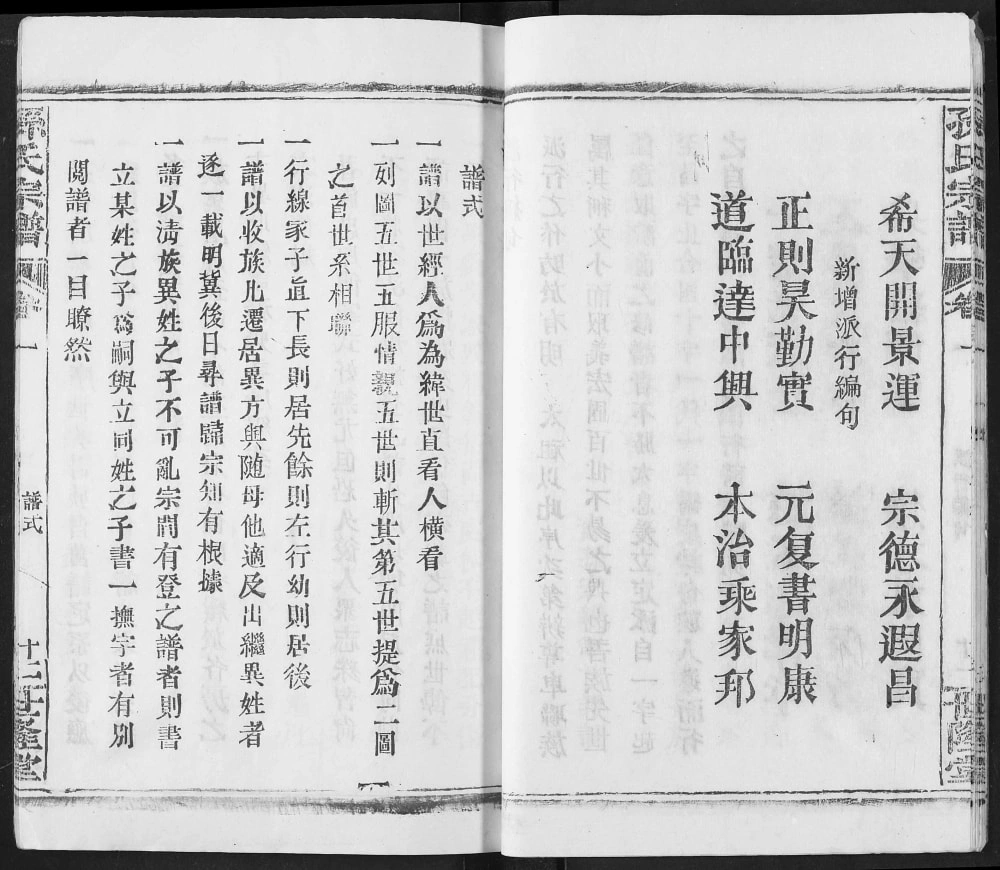 孫氏宗譜 卷一 世隆堂
希天開景運 宗德永遐昌
新增派行編句
正則昊勤實 元复書明康
道臨達中興 本治乘家邦
譜式
一譜以世經人爲為緯世直看人橫看
一列圖五世五服情親五世則斬其第五世提爲二圖
之首世系相聯
一行線冢子直下長則居先餘則左行幼則居後
一譜以收族凡遷居異方與随母他適及出繼異姓者
逐一載明冀後日尋譜歸宗知有根據
一譜以淸族異姓之子不可亂宗間有登之譜者則書
立某姓之子爲嗣與立同姓之子書一撫字者有別
閱譜者一目瞭然
孫氏宗譜 卷一 譜式 十二 世隆堂